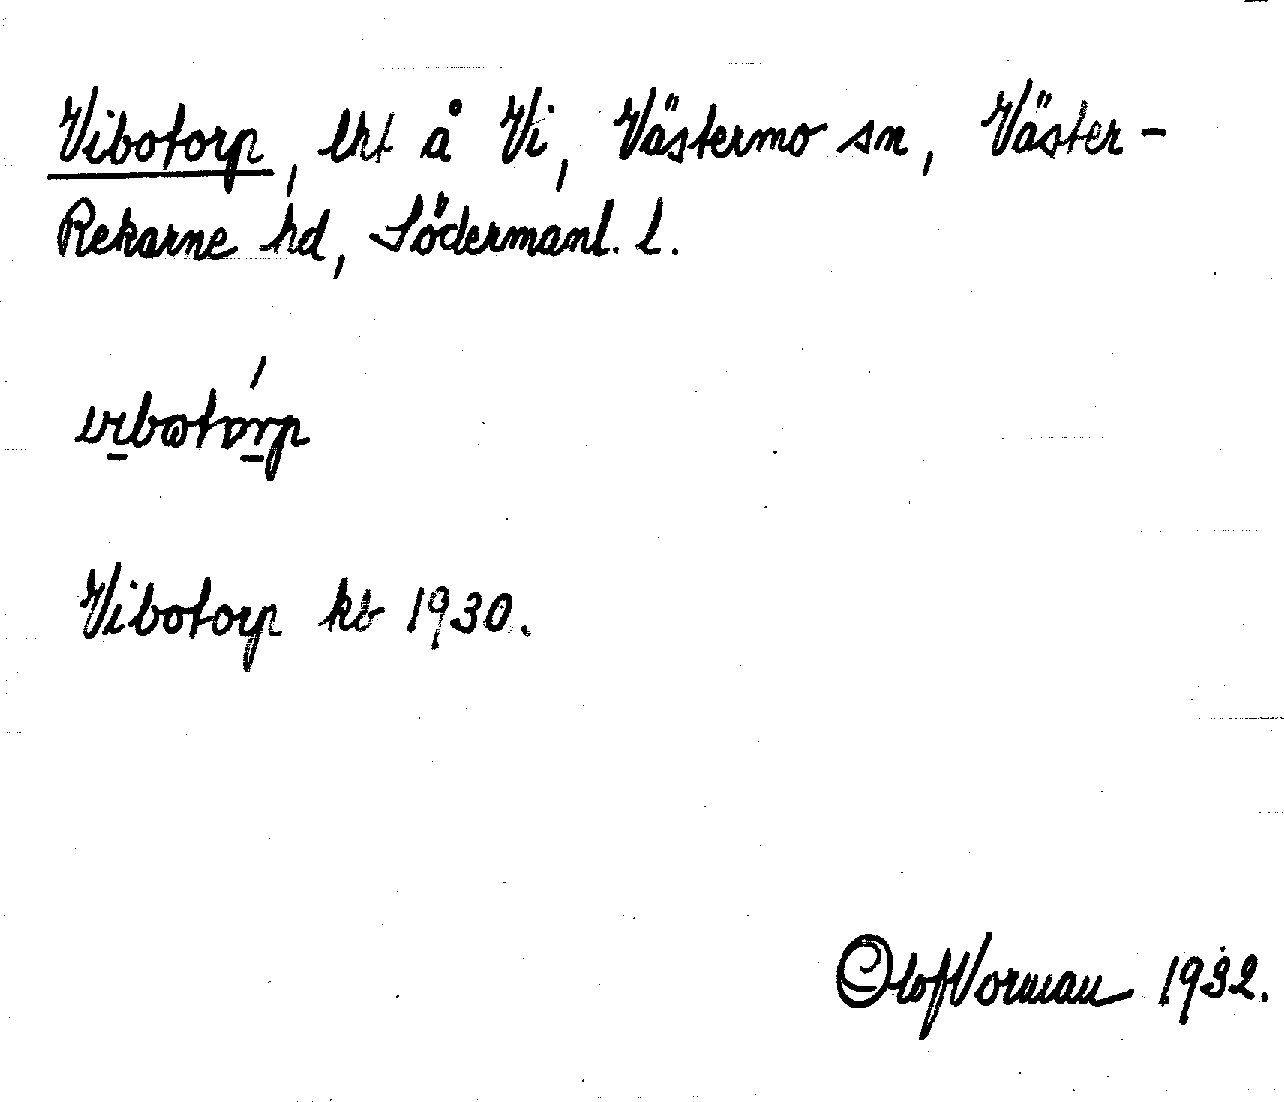 Vibotorp, lht å Vi, Västermo sn, Väster-
Rekarne hd, Södermanl. l.
vibωtórp
Vibotorp kb 1930.
Olof Vorman 1932.